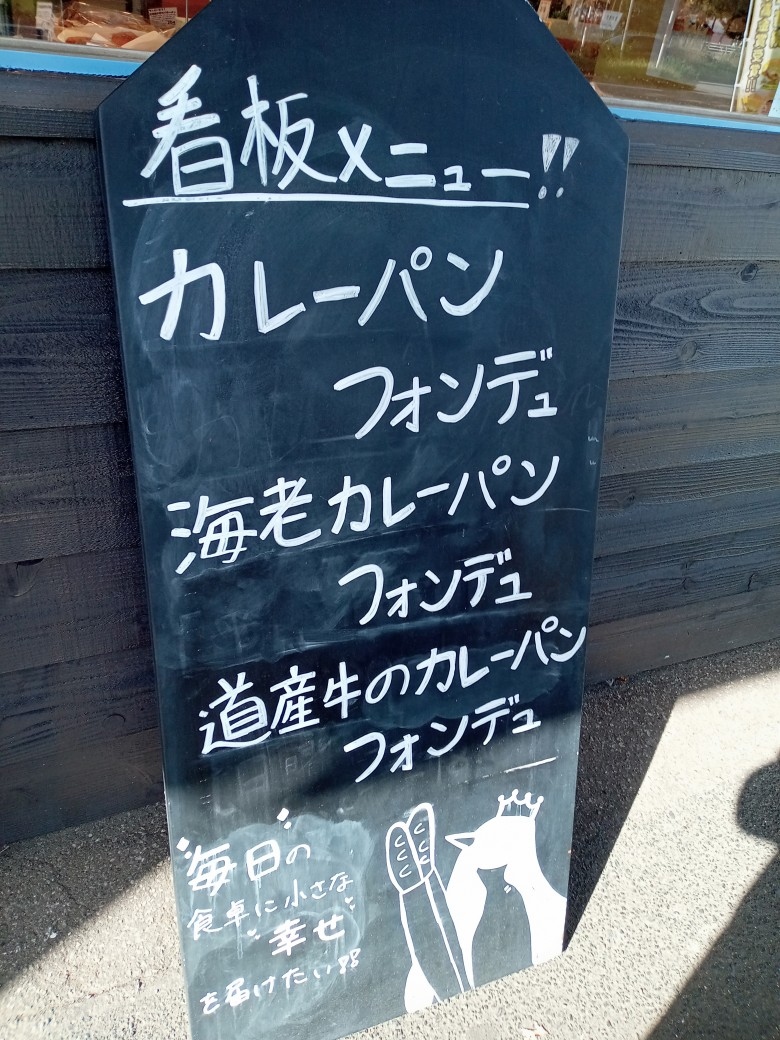 看板メニュー!!
カレーパン
フォンデュ
海老カレーパン
フォンデュ
道産牛のカレーパン
フォンデュ
毎日の
食卓に小さな
幸せ
を届けたい